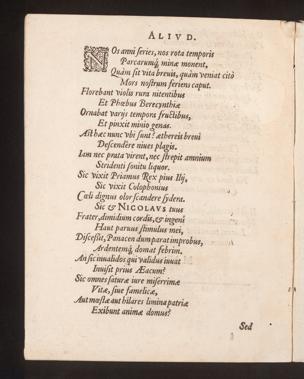 ALIVD.
NOs anni series, nos rota temporis
Parcarumq́; minæ monent,
Quàm sit vita breuis, quàm veniat citò
Mors nostrum feriens caput.
Florebant violis rura nitentibus
Et Phœbus Berecynthiæ
Ornabat varijs tempora fructibus,
Et pinxit minio genas.
Ast hæc nunc vbi sunt? æthereis breui
Descendêre niues plagis.
Iam nec prata virent, nec strepit amnium
Stridenti sonitu liquor.
Sic vixit Priamus Rex pius Ilij,
Sic vixit Colophonius
Cœli dignus olor scandere sydera.
Sic & NICOLAVS tuus
Frater, dimidium cordis, & ingenî
Haut paruus stimulus mei,
Discessit, Panacen dum parat improbus,
Ardentemq́; domat febrim.
An sic inualidos qui validus iuuat
Inuisit prius Æacum?
Sic omnes saturæ iure miserrimæ
Vitæ, siue famelicæ,
Aut mœstæ aut hilares limina patriæ
Exibunt animæ domus?
Sed